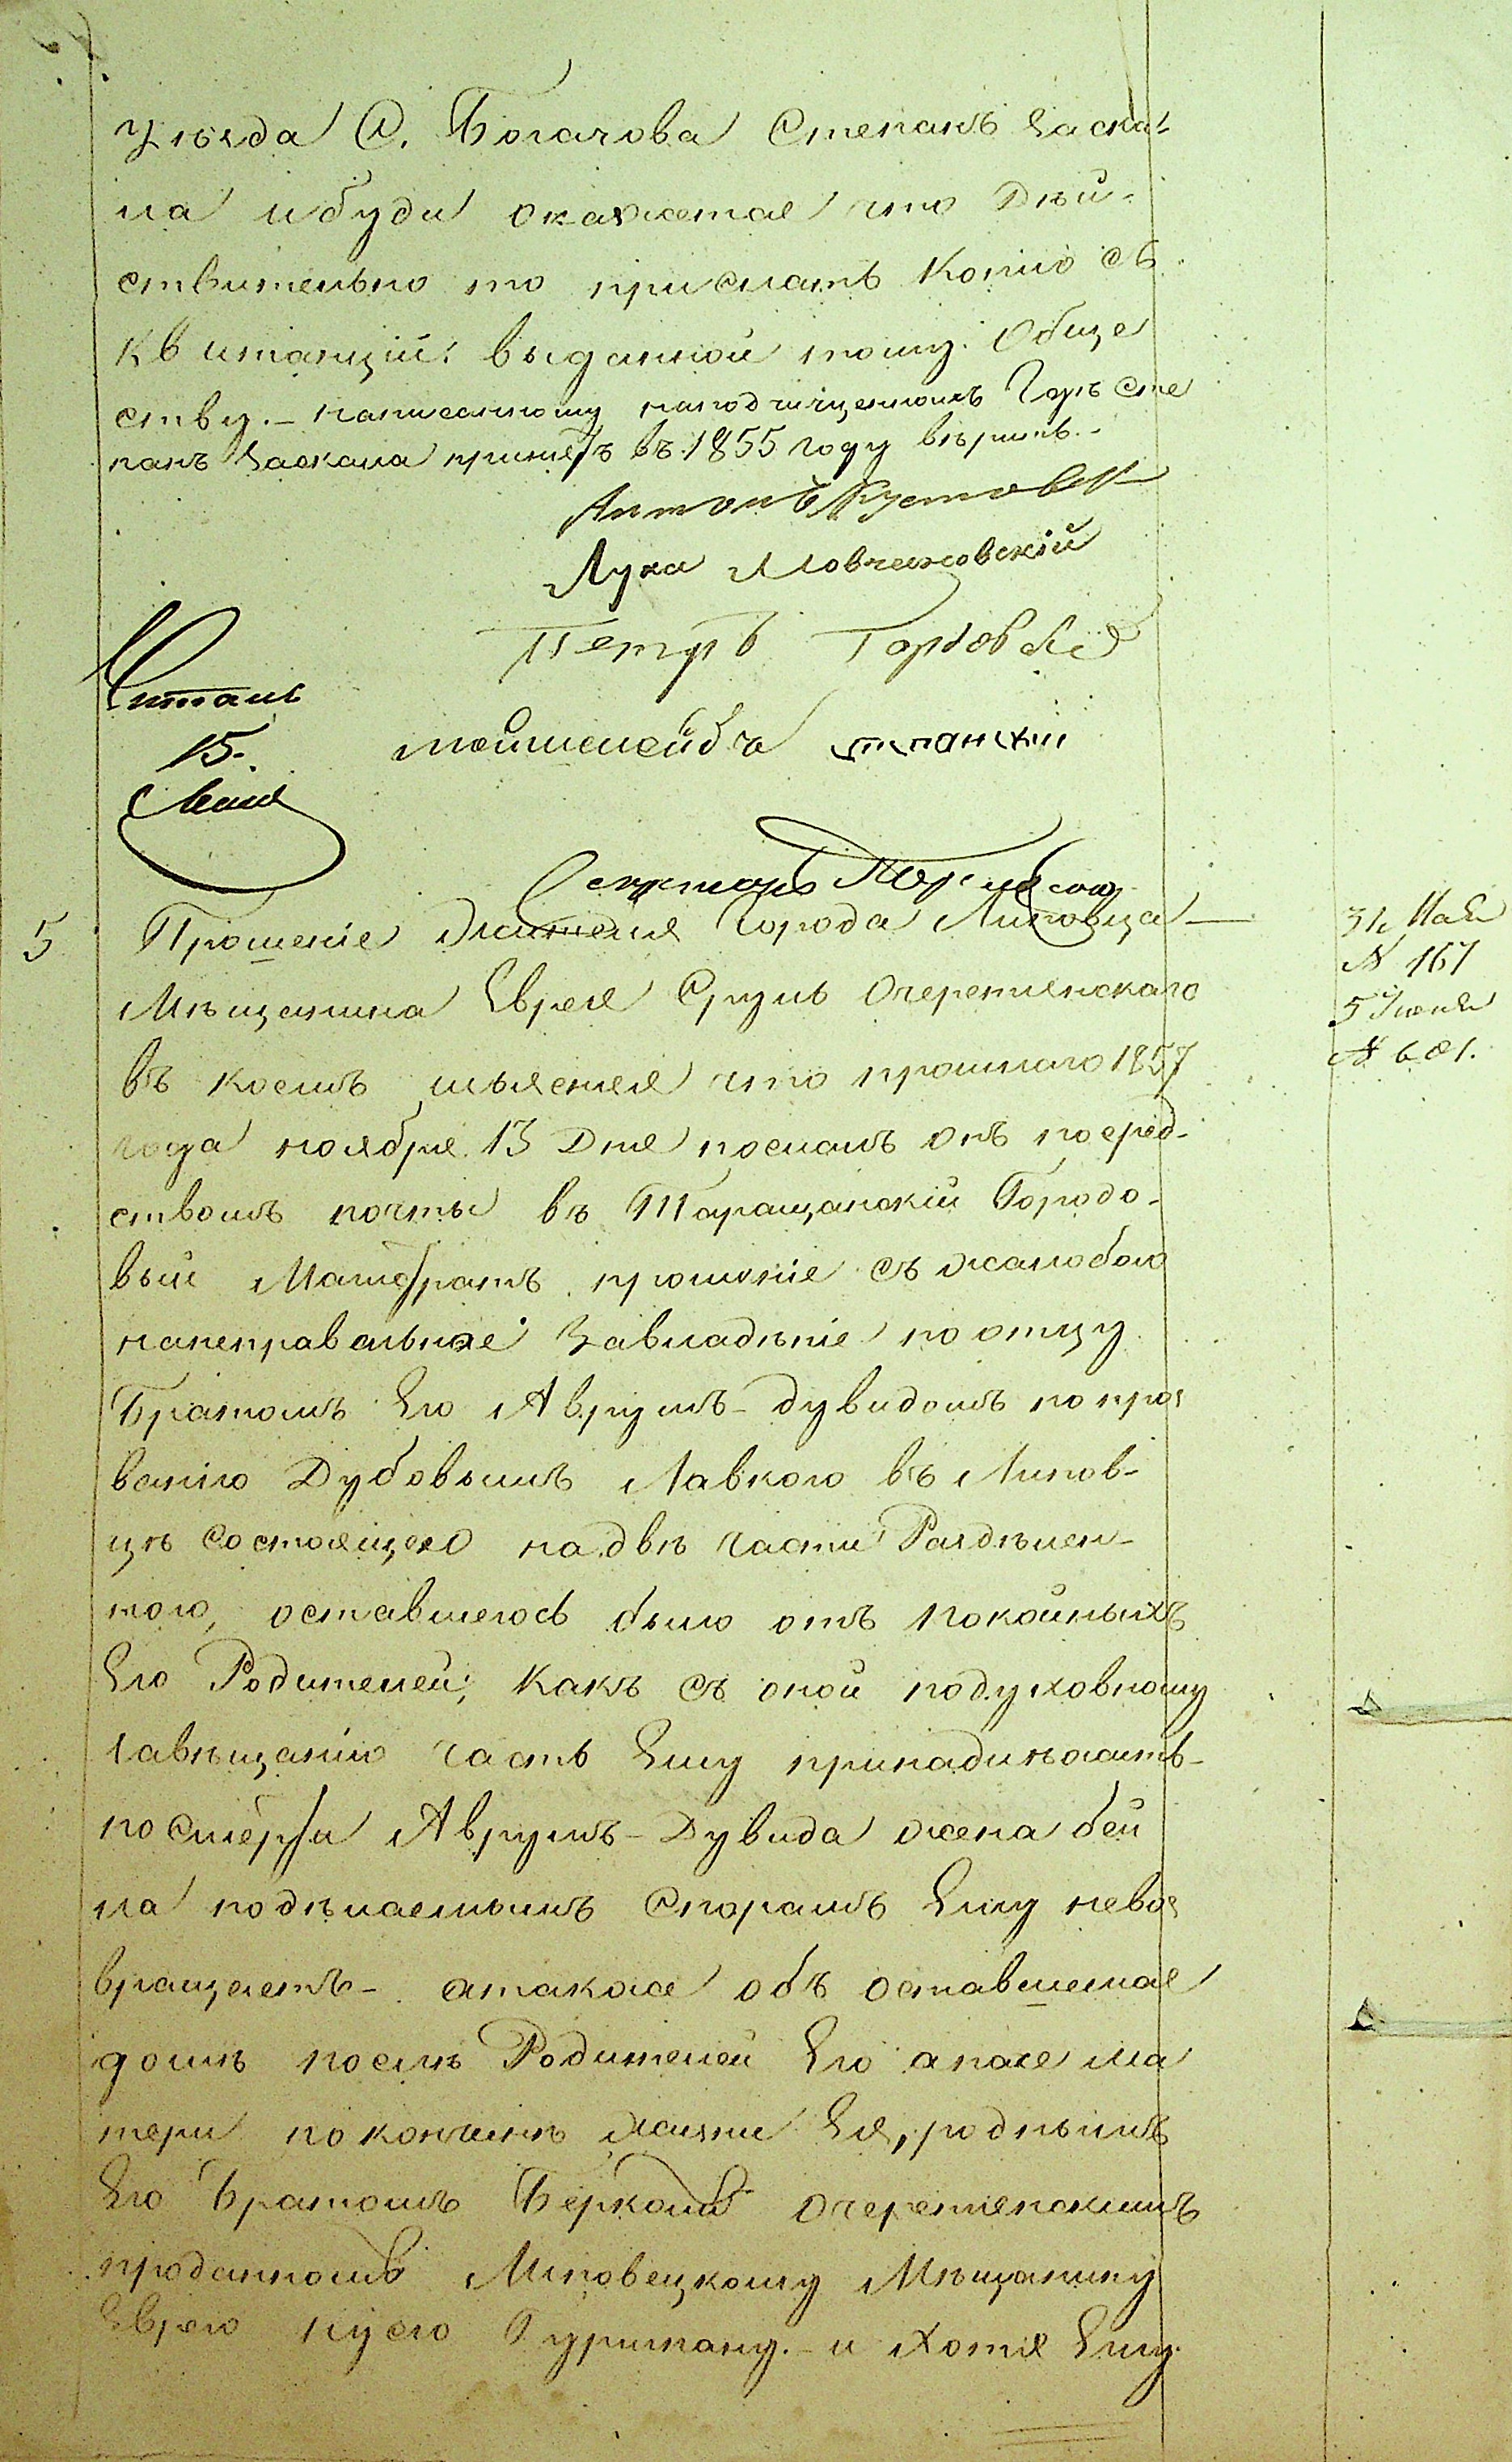 Уѣзда С. Богачова Степанъ Заска-
ла и буди окажется что Дѣй-
ствительно то прислать Копію съ
Квитанціи выданной тому Обще
ству. – написанному наподчищенномъ Годъ Сте
панъ Заскала принетъ въ 1855 году вѣрить. –
Антонъ
Лука
Петръ
Читалъ
15.
Мая
5 Прошеніе Жителя Города Липовца –
31 Мая
№ 167
5 Іюня
Мѣщанина Еврея Сруль Очеретянскаго
въ коемъ изъясняя что прошлаго 1857
года ноября 13 Дня послалъ онъ посред-
ствомъ почты въ Таращанскій Городо-
вый Магистратъ прошеніе съ жалобою
нанеправильное Завладѣніе по отцу
Братомъ Его Аврумъ-Дувидомъ по проз
ванію Дубовымъ Лавкою въ Липов-
цѣ состоящею на двѣ части Раздѣлен-
ною, оставшеюсь было отъ покойныхъ
Его Родителей; Какъ съ оной подуховному
завѣщанію часть Ему принадлѣжитъ –
по смерти Аврумъ-Дувида жена бей
ла подѣлаемымъ Спорамъ Ему невоз
вращаетъ – атакже объ оставшемся
домѣ послѣ Родителей Его апосле ма
тери по кончинѣ жизни Ея, роднымъ
Его Братомъ Беркомъ Очеретянскимъ
проданномъ Липовецкому Мѣщанину
Еврею Гурманту. – и Хотя Ему